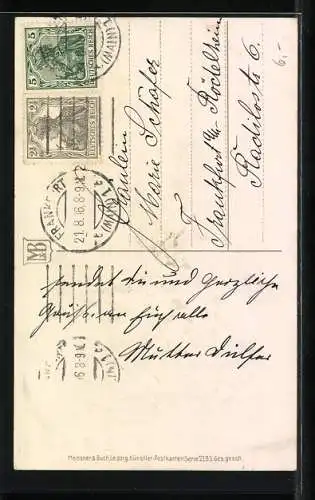 5
DEUTSCHES REICH
2½
DEUTSCHES REICH
FRANKFURT
(MAIN) 1
21.8.16. 8-9
Fräulein
Marie Schäfer
Frankfurt a/M Rödelheim
Radilostr 6.
6,-
MB
sendet dir und herzliche
Grüße an Euch alle
Mutter
Meissner & Buch, Leipzig. Künstler-Postkarten Serie 2193. Ges. gesch.